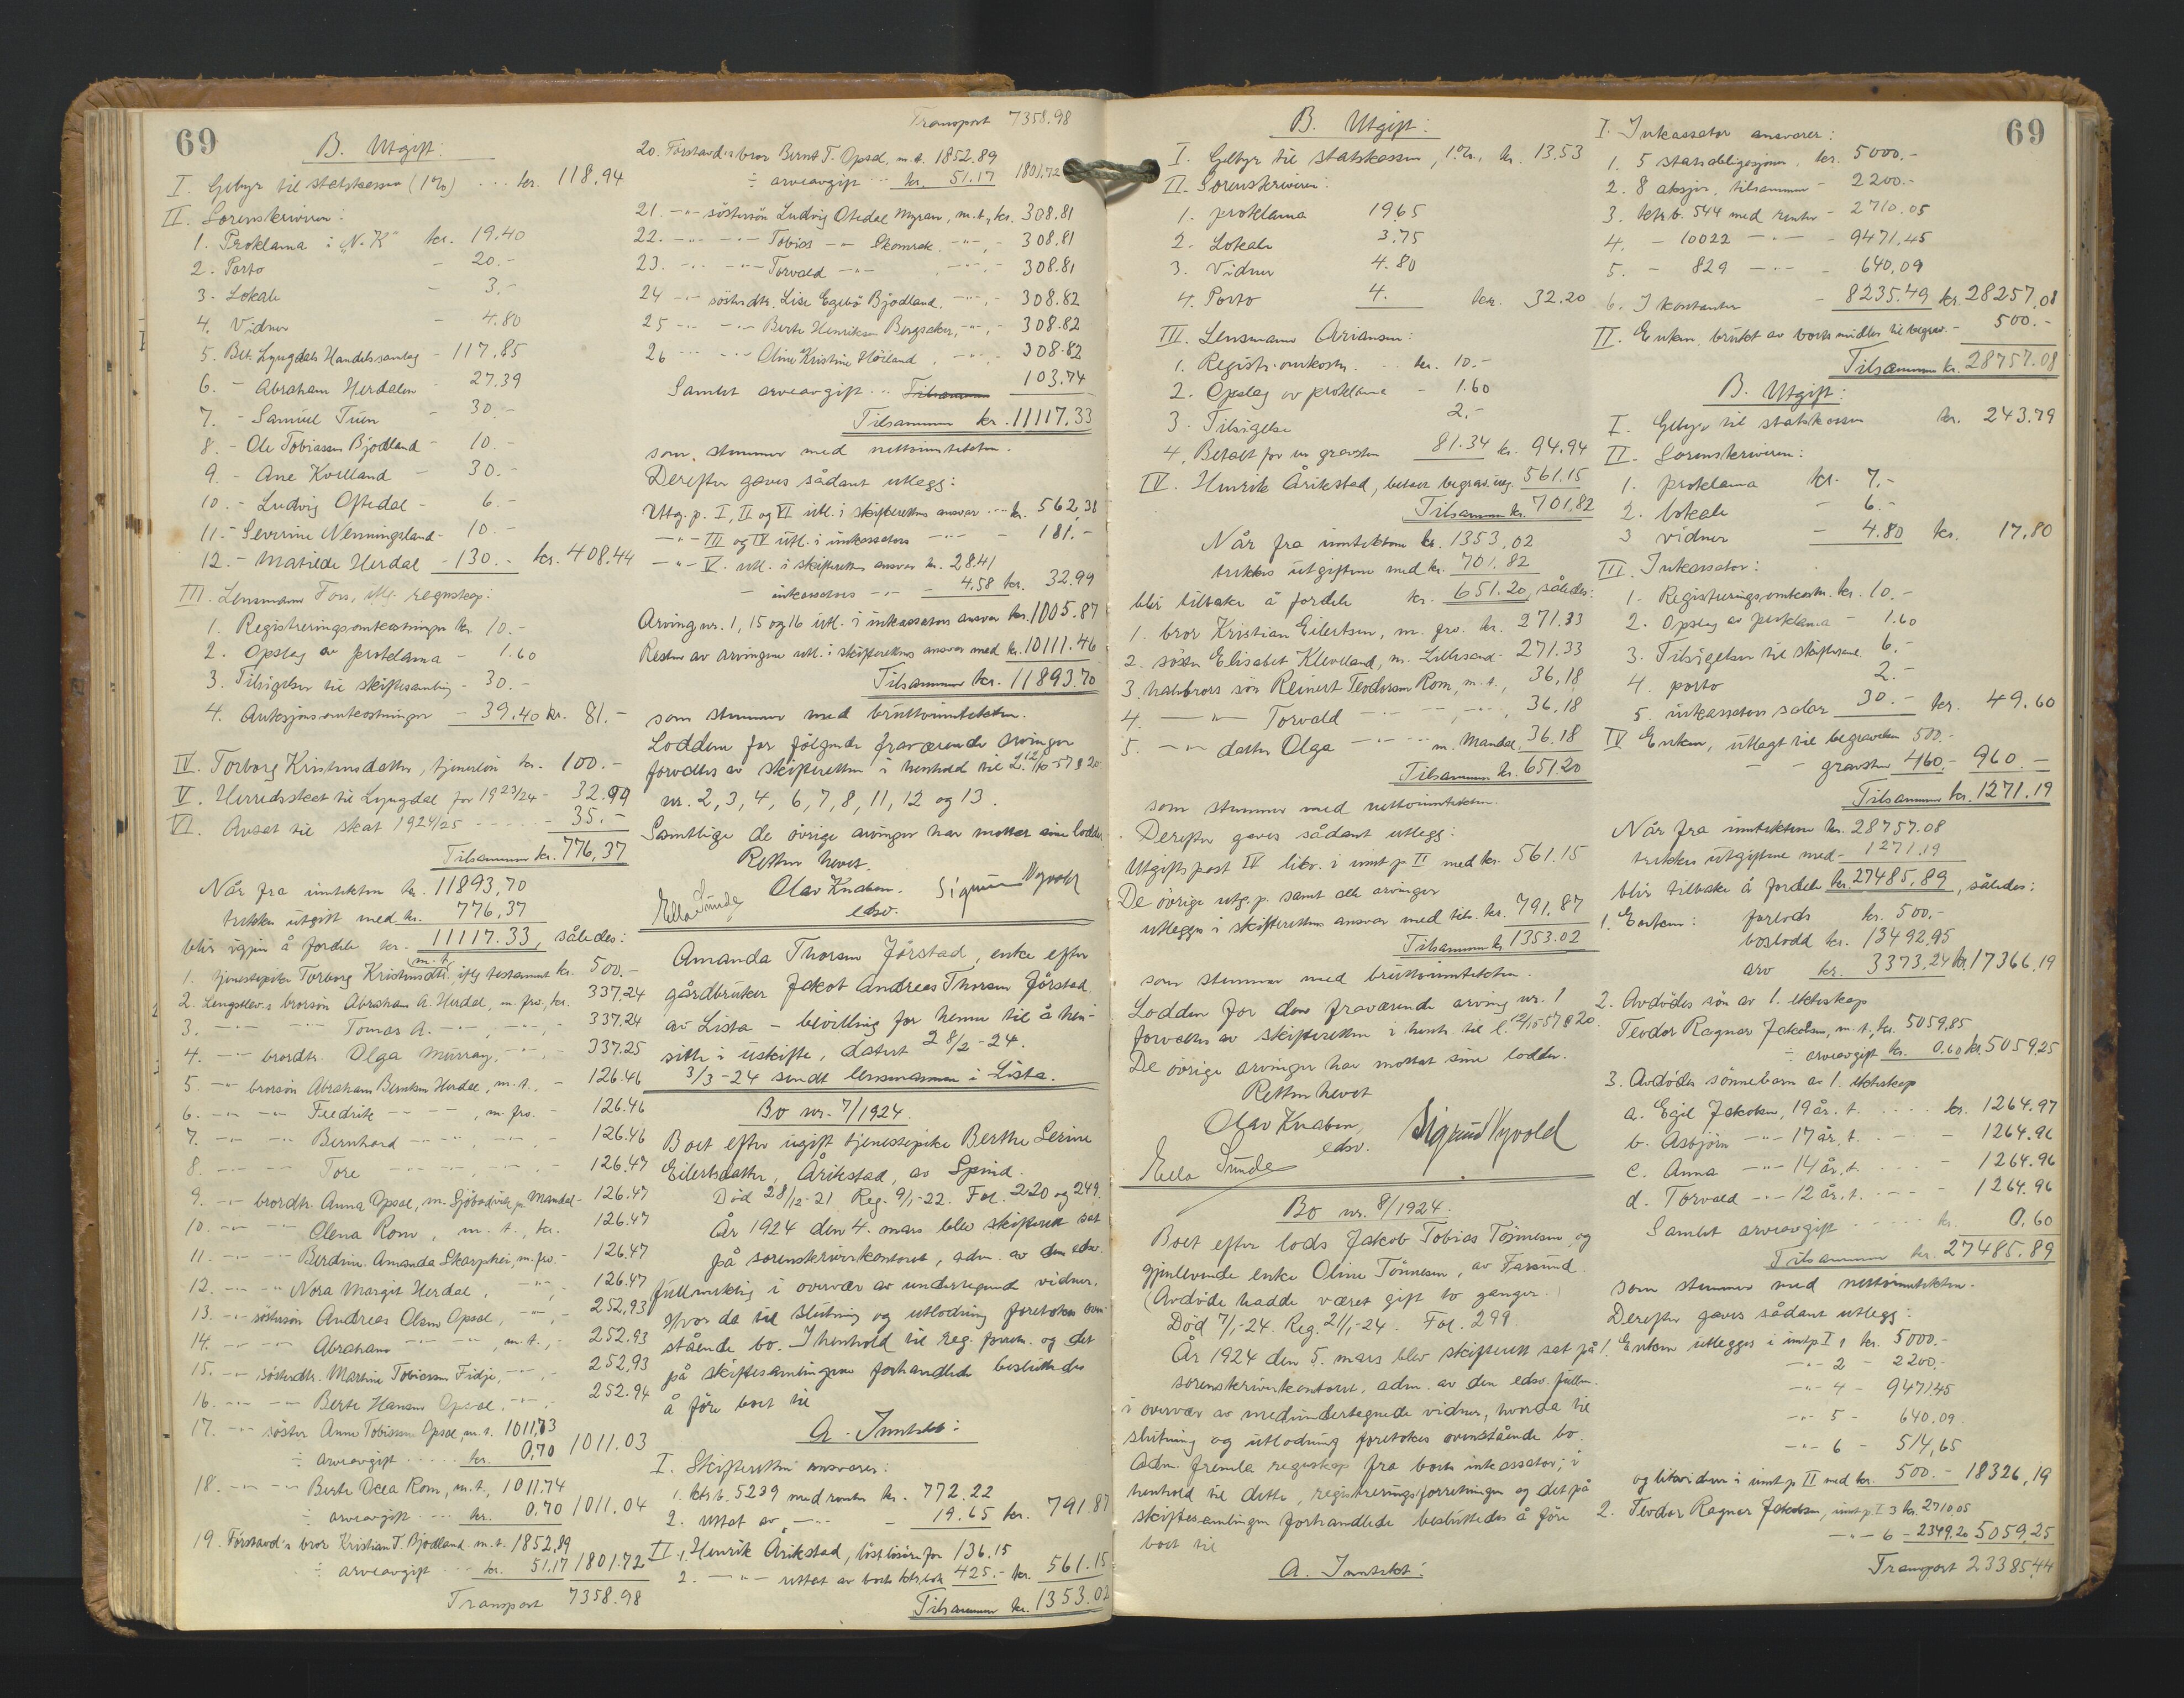 69
B. Utgift:
I. Gebyr til statskassen (1%) ... kr. 118,94
II. Sorenskriveren:
1. Proklama i "N.K" kr. 19.40
2. Porto - 20.-
3. Lokale - 3.-
4. Vidner - 4.80
5. Bet. Lyngdals Handelssamlag - 117,85
6. - Abraham Herdalen - 27.39
7. - Samuel Tuen - 30.-
8. - Ole Tobiassen Bjodland - 10.-
9. - Ane Kvelland - 30.-
10. - Ludvig Oftedal - 6.-
11. - Severine Nenningsland - 10.-
12. - Matilde Herdal - 130.- kr. 408.44
III. Lensmann Fors, iflg. regnskap:
1. Registreringsomkostninger kr. 10.-
2. Opslag av proklama - 1.60
3. Tilsigelser til skiftesamling - 30.-
4. Auksjonsomkostninger - 39.40 kr. 81.-
IV. Torborg Kristensdatter, tjenerløn kr. 100.-
V. Herredsskat til Lyngdal for 1923/24 - 32.99
VI. Avsat til skat 1924/25 - 35.-
Tilsammen kr. 776,37
Når fra inntekten kr. 11893,70
trekkes utgift med kr. 776,37
blir igjen å fordele kr. 11117.33, således:
1. tjenestepike Torborg Kristensdtr. (m.t.), iflg testament kr. 500.-
2. Lengstlev.s brorsøn Abraham A. Herdal, m. frv., kr. 337.24
3. -"- -"- Tomas A. -"-, -"-, - 337.24
4. -"- brordtr. Olga Murray, -"-, - 337.25
5. -"- brorsøn Abraham Berntsen Herdal, m.t., - 126.46
6. -"- -"- Fredrik -"- -"-, m. frv. - 126.46
7. -"- -"- Bernhard -"- -"-, -"- - 126.46
8. -"- -"- Tore -"- -"-, -"- - 126.47
9. -"- brordtr. Anna Opsal, m. Sjöbodvik pr. Mandal - 126.47
10. -"- -"- Olena Rom, m.t., kr. 126.47
11. -"- -"- Berdine Amanda Skarphei, m. frv. - 126.47
12. -"- -"- Nora Margit Herdal, -"-, 126.47
13. -"- søstersøn Andreas Olsen Opsal, -"-, - 252,93
14. -"- -"- Abraham -"- -"-, m.t., - 252.93
15. -"- søsterdtr. Martine Tobiassen Fidje, -"-, - 252,93
16. -"- -"- Berte Hansen Opsal, -"-, - 252.94
17. -"- søster Anne Tobissen Opsal, m.t. 1011,73
÷ arveavgift ..... kr. 0,70 1011.03
18. -"- -"- Berte Ocea Rom, m.t., 1011.74
÷ arveavgift ... kr. 0.70 1011.04
19. Førstavd.s bror Kristian T. Bjodland m.t. 1852,89
÷ arveavgift ... kr. 51.17 1801.72
Transport 7358.98
Transport 7358.98
20. Førstavd.s bror Bernt T. Opsal, m.t. 1852.89
÷ arveavgift ... kr. 51.17 1801.72
21. -"- søstersøn Ludvig Otedal Myran, m.t., kr. 308.81
22. -"- -"- Tobias -"- Skomrak, -"-, - 308.81
23. -"- -"- Torvald -"- , -"-, - 308.81
24 -"- søsterdtr. Lise Egebø Bjodland, -"-, - 308.82
25 -"- -"- Berte Henriksen Bergsaker, -"-, - 308.82
26 -"- -"- Oline Kristine Hørland, -"-, - 308.82
Samlet arveavgift ... Tilsammen 103.74
Tilsammen kr. 11117.33
som stemmer med nettoinntekten.
Derefter gaves sådant utlegg:
Utg. p. I, II og VI utl. i skifterettens ansvar ... kr. 562,38
-"- III og IV utl. i inkassators -"- - 181.-
-"- V. utl. i skifterettens ansvar kr. 28.41
- inkassators -"- - 4.58 kr. 32.99
Arving nr. 1, 15 og 16 utl. i inkassators ansvar kr. 1005.87
Resten av arvingene utl. i skifterettens ansvar med kr. 10111.46
Tilsammen kr. 11893.70
som stemmer med bruttoinntekten.
Loddene for følgende fraværende arvinger
forvaltes av skifteretten i henhold til L. 12/10-57 § 20.
nr. 2, 3, 4, 6, 7, 8, 11, 12 og 13.
Samtlige de øvrige arvinger har mottat sine lodder.
Retten hevet.
Olav Knaben.
edsv.
Ella Sunde
Sigrun Nyvold
Amanda Thorsen Jørstad, enke efter
gårdbruker Jakob Andreas Thorsen Jørstad
av Lista - bevilling for henne til å hen-
sitte i uskifte, datert 28/2-24.
3/3-24 sendt lensmannen i Lista.
Bo nr. 7/1924.
Boet efter ugift tjenestepike Berthe Serine
Eilertsdatter Årikstad, av Spind.
Død 28/12-21 Reg. 9/1-22. Fol. 220 og 249.
År 1924 den 4. mars blev skifterett sat
på sorenskriverkontoret, adm. av den edsv.
fullmektig i overvær av undertegnede vidner.
Hvor da til slutning og utlodning foretokes oven-
stående bo. I henhold til reg. forretn. og det
på skiftesamlingene forhandlede besluttedes
å føre boet til
A. Inntekt:
I. Skifteretten ansvarer:
1. ktrb. 5239 med renter kr. 772.22
2. uttat av -"- - 19.65 kr. 791.87
II. 1. Henrik Årikstad, løst løsøre for 136.15
2. -"- uttat av boets ktrbok 425.- kr. 561.15
Tilsammen kr. 1353.02
B. Utgift:
I. Gebyr til statskassen, 1%, kr. 13.53
II. Sorenskriveren:
1. proklama 19.65
2. Lokale 3.75
3. Vidner 4.80
4. Porto 4. kr. 32.20
III. Lensmann Arianson:
1. Registr.omkostn. .. kr. 10.-
2. Opslag av proklama - 1.60
3. Tilsigelse 2.-
4. Betalt for en gravsten 81.34 kr. 94.94
IV. Henrik Årikstad, betalt begrav.utg. 561.15
Tilsammen kr. 701,82
Når fra inntekten kr. 1353,02
trekkes utgiftene med kr. 701,82
blir tilbake å fordele kr. 651.20, således:
1. bror Kristian Eilertsen, m. frv. kr. 271.33
2. søster Elisabet Klevelland, m. Lillesand - 271.33
3. halvbrors søn Reinert Teodorsen Rom, m.t., 36,18
4. -"- Torvald -"- -"-, 36.18
5. -"- datter Olga -"- m. Mandal, 36.18
Tilsammen kr. 651.20
som stemmer med nettoinntekten.
Derefter gaves sådant utlegg:
Utgiftspost IV likv. i innt. p. II med kr. 561.15
De øvrige utg. p. samt alle arvinger
utlegges i skifterettens ansvar med tils. kr. 791.87
Tilsammen kr. 1353.02
som stemmer med bruttoinntekten.
Lodden for den fraværende arving nr. 1
forvaltes av skifteretten i henh. til l. 12/10 57 § 20.
De øvrige arvinger har mottat sine lodder.
Retten hevet
Olav Knaben,
edsv.
Sigrun Nyvold
Ella Sunde
Bo nr. 8/1924.
Boet efter lods Jakob Tobias Tønnesen og
gjenlevende enke Oline Tønnesen, av Farsund.
(Avdøde hadde været gift to ganger.)
Død 7/1-24. Reg. 21/1-24. Fol. 299
År 1924 den 5. mars blev skifterett sat på
sorenskriverkontoret, adm. av den edsv. fullm.
i overvær av medundertegnede vidner, hvorda til
slutning og utlodning foretokes ovenstående bo.
Adm. fremla regnskap fra boets inkassator; i
henhold til dette, registreringsforretningen og det på
skiftesamlingen forhandlede besluttedes å føre
boet til
A. Inntekt:
69
I. Inkassator ansvarer:
1. 5 statsobligasjoner, kr. 5000.-
2. 8 aksjer, tilsammen - 2200.-
3. ktrb. 544 med renter - 2710.05
4. - 10022 -"- - 9471.45
5. - 829 -"- - 640,09
6. I kontanter - 8235.49 kr. 28257,08
II. Enken, brukt av boets midler til begrav. - 500.-
Tilsammen kr. 28757.08
B. Utgift:
I. Gebyr til statskassen kr. 243.79
II. Sorenskriveren:
1. proklama kr. 7.-
2. lokale - 6.-
3 vidner - 4.80 kr. 17.80
III. Inkassator:
1. Registreringsomkostn. kr. 10.-
2. Opslag av proklama - 1.60
3. Tilsigelser til skiftesaml. 6.-
4. porto 2.-
5. inkassators salær 30.- kr. 49.60
IV Enken, utlagt til begravelsen 500.-
- - gravsten 460.- 960.-
Tilsammen kr. 1271.19
Når fra inntekten kr. 28757.08
trekkes utgiftene med - 1271.19
blir tilbake å fordele kr. 27485,89, således:
1. Enken: forlods kr. 500.-
boslodd kr. 13492.95
arv kr. 3373,24 kr. 17366,19
2. Avdødes søn av 1. ekteskap
Teodor Ragnar Jakobsen, m.t., kr. 5059,85
÷ arveavgift kr. 0.60 kr. 5059,25
3. Avdødes sønnebarn av 1. ekteskap
a. Egil Jakobsen, 19 år. t. .... kr. 1264.97
b. Asbjørn -"- 17 år, t. ... - 1264.96
c. Anna -"- 14 år, t. ... - 1264.96
d. Torvald -"- 12 år. t. ... - 1264.96
Samlet arveavgift ..... kr. 0,60
Tilsammen kr. 27485.89
som stemmer med nettoinntekten.
Derefter gaves sådant utlegg:
1. Enken utlegges i innt.p I 1 kr. 5000.-
-"- 2 - 2200.-
-"- 4 - 9471.45
-"- 5 - 640.09
-"- 6 - 514,65
og likvideres i innt.p II med kr. 500.- 18326,19
2. Teodor Ragnar Jakobsen, innt.p. I 3 kr. 2710.05
-"- 6 - 2349.20 5059,25
Transport 23385,44